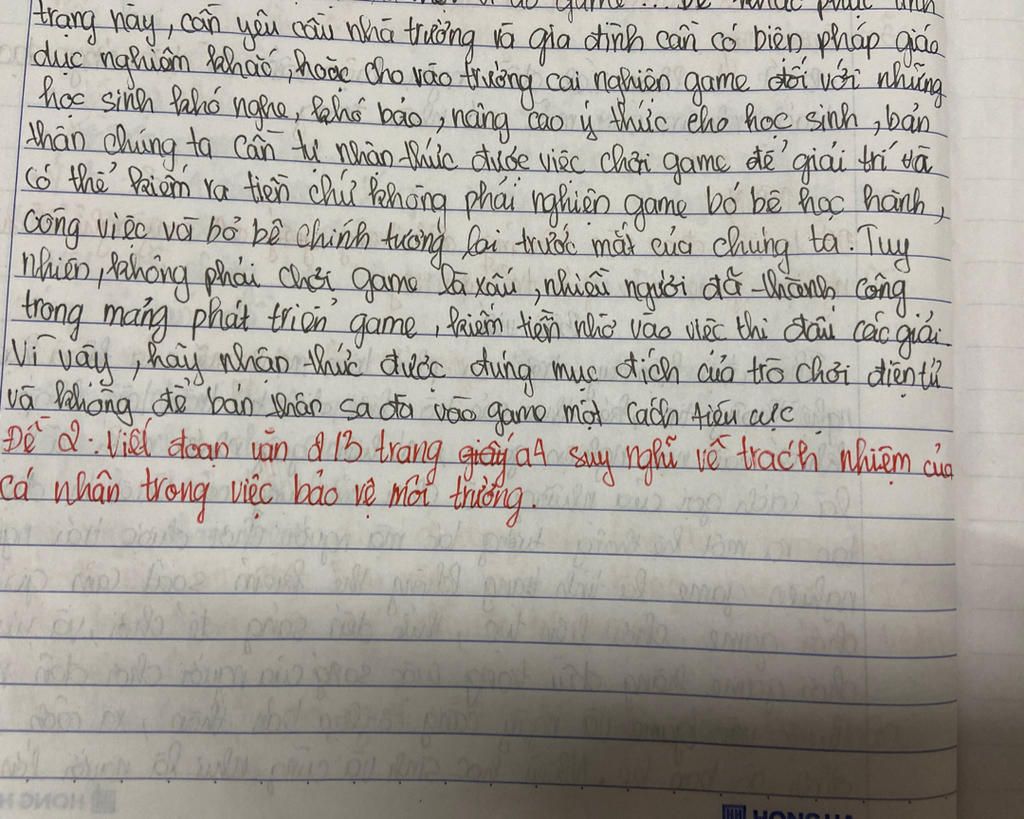 trạng này, cần yêu cầu nhà trường và gia đình cần có biện pháp giáo
dục nghiêm khắc, hoặc cho vào trường cai nghiện game đối với những
học sinh khó nghe, khó bảo, nâng cao ý thức cho học sinh, bản
thân chúng ta cần tự nhận thức được việc chơi game để giải trí và
có thể kiếm ra tiền chứ không phải nghiện game bỏ bê học hành,
công việc và bỏ bê chính tương lai trước mắt của chúng ta. Tuy
nhiên, không phải chơi game là xấu, nhiều người đã thành công
trong mảng phát triển game, kiếm tiền nhờ vào việc thi đấu các giải.
Vì vậy, hãy nhận thức được đúng mục đích của trò chơi điện tử
và không để bản thân sa đà vào game một cách tiêu cực
Đề 2: Viết đoạn văn 2/3 trang giấy a4 suy nghĩ về trách nhiệm của
cá nhân trong việc bảo vệ môi trường.